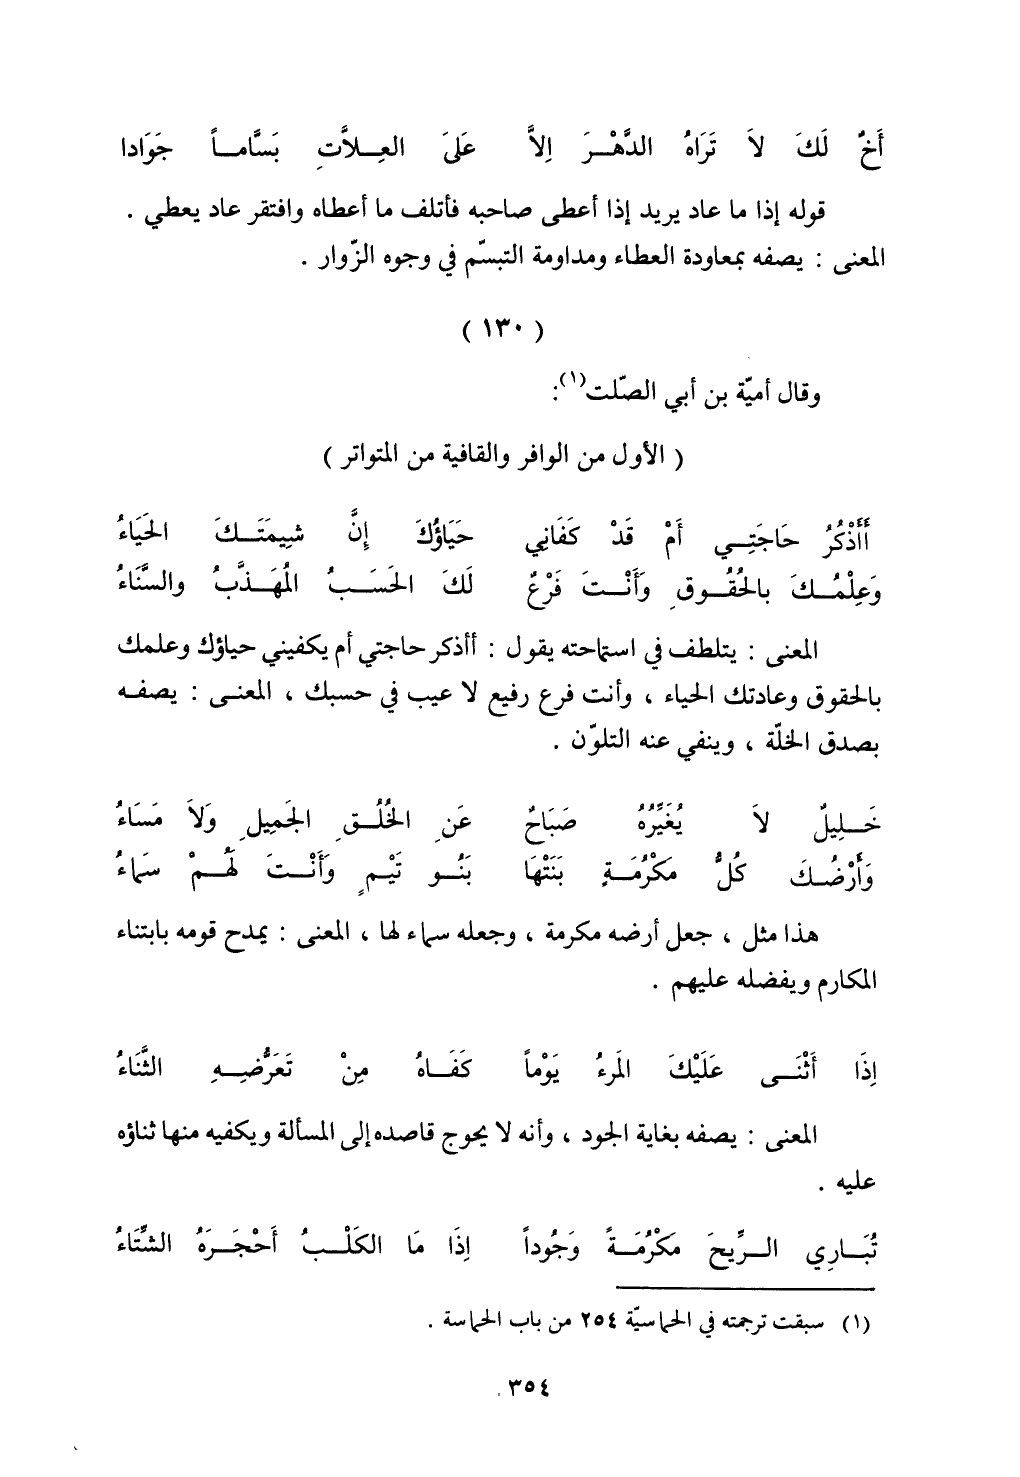 أَخٌ لَكَ لاَ تَرَاهُ الدَّهْرَ اِلاَّ عَلىَ العِلاَّتِ بَسَّاماً جَوَادا
قوله إذا ما عاد يريد إذا أعطى صاحبه فأتلف ما أعطاه وافتقر عاد يعطي .
المعنى : يصفه بمعاودة العطاء ومداومة التبسّم في وجوه الزّوار .
( ١٣٠ )
وقال أميّة بن أبي الصّلت(١):
( الأول من الوافر والقافية من المتواتر )
أَأَذْكُرُ حَاجَتِي أَمْ قَدْ كَفَانِي حَيَاؤُكَ إِنَّ شِيمَتَكَ الحَيَاءُ
وَعِلْمُكَ بالحُقُوقِ وَأَنْتَ فَرْعٌ لَكَ الحَسَبُ المُهَذَّبُ والسَّنَاءُ
المعنى : يتلطف في استماحته يقول : أأذكر حاجتي أم يكفيني حياؤك وعلمك
بالحقوق وعادتك الحياء ، وأنت فرع رفيع لا عيب في حسبك ، المعنى : يصفه
بصدق الخلّة ، وينفي عنه التلوّن .
خَلِيلٌ لاَ يُغَيِّرُهُ صَبَاحٌ عَنِ الخُلُقِ الجَمِيلِ وَلاَ مَسَاءُ
وَأَرْضُكَ كُلُّ مَكْرُمَةٍ بَنَتْهَا بَنُو تَيْمٍ وَأَنْتَ لَهُمْ سَماءُ
هذا مثل ، جعل أرضه مكرمة ، وجعله سماء لها ، المعنى : يمدح قومه بابتناء
المكارم ويفضله عليهم .
اِذَا أَثْنَى عَلَيْكَ المَرءُ يَوْماً كَفَاهُ مِنْ تَعَرُّضِهِ الثَّنَاءُ
المعنى : يصفه بغاية الجود ، وأنه لا يحوج قاصده إلى المسألة ويكفيه منها ثناؤه
عليه .
تُبَارِي الرِّيحَ مَكْرُمَةً وَجُوداً اِذَا مَا الكَلْبُ أَحْجَرَهُ الشِّتَاءُ
(١) سبقت ترجمته في الحماسيّة ٢٥٤ من باب الحماسة .
٣٥٤